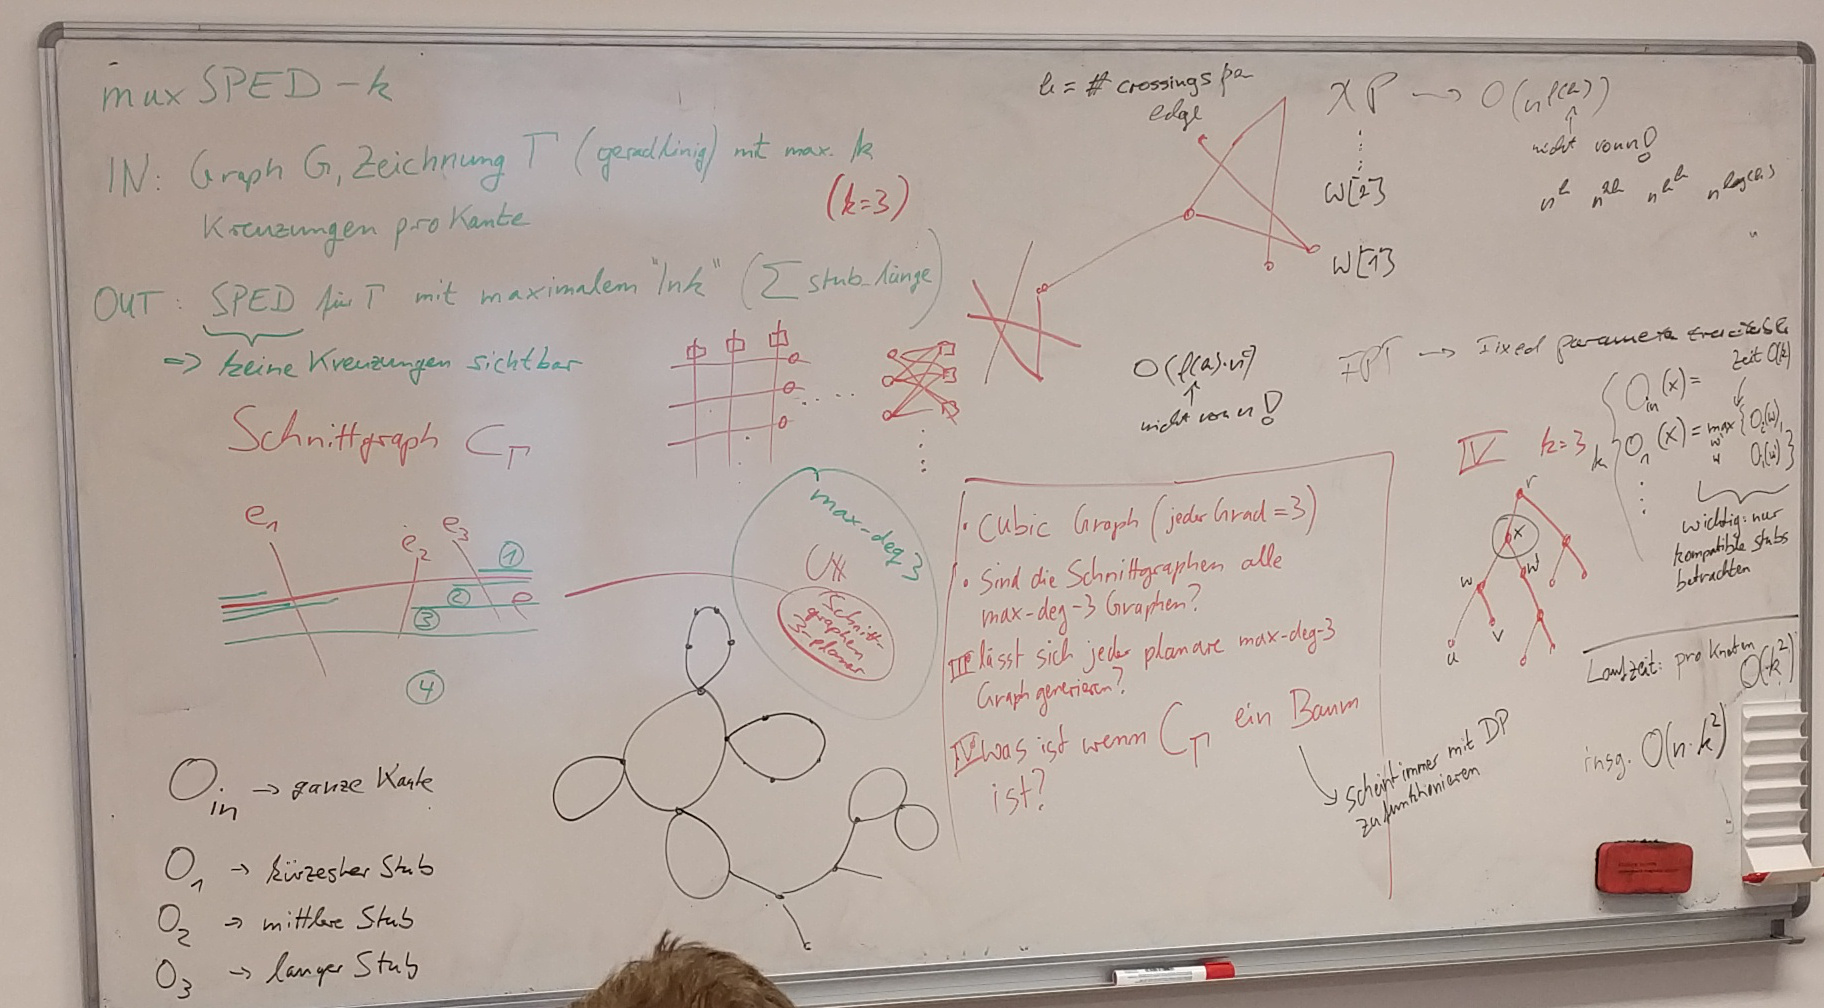 max SPED - k
IN: Graph G, Zeichnung Γ (geradlinig) mit max. k
Kreuzungen pro Kante
(k=3)
OUT: SPED für Γ mit maximalem "Ink" (∑ stub-länge)
=> keine Kreuzungen sichtbar
Schnittgraph C_Γ
e_1
e_2
e_3
e
①
②
③
④
O_in → ganze Kante
O_1 → kürzester Stub
O_2 → mittlere Stub
O_3 → langer Stub
max-deg 3
Schnitt-
graphen
3-planar
k = # crossings per
edge
XP → O(n^f(k))
↑
nicht von n!
W[2]
W[1]
n^k n^2k n^k^k n^log(k)
O(f(k)·n^c)
↑
nicht von n!
FPT → Fixed parameter tractable
· Cubic Graph (jeder Grad = 3)
· Sind die Schnittgraphen alle
max-deg-3 Graphen?
III lässt sich jeder planare max-deg-3
Graph generieren?
IV was ist wenn C_Γ ein Baum
ist?
scheint immer mit DP
zu funktionieren
IV k=3
Zeit O(k)
O_in(x) =
k O_1(x) = max { O_2(w),
w
w' O_1(w') }
wichtig: nur
kompatible Stubs
betrachten
r
x
w
w'
u
v
Laufzeit: pro Knoten
O(k^2)
insg. O(n·k^2)